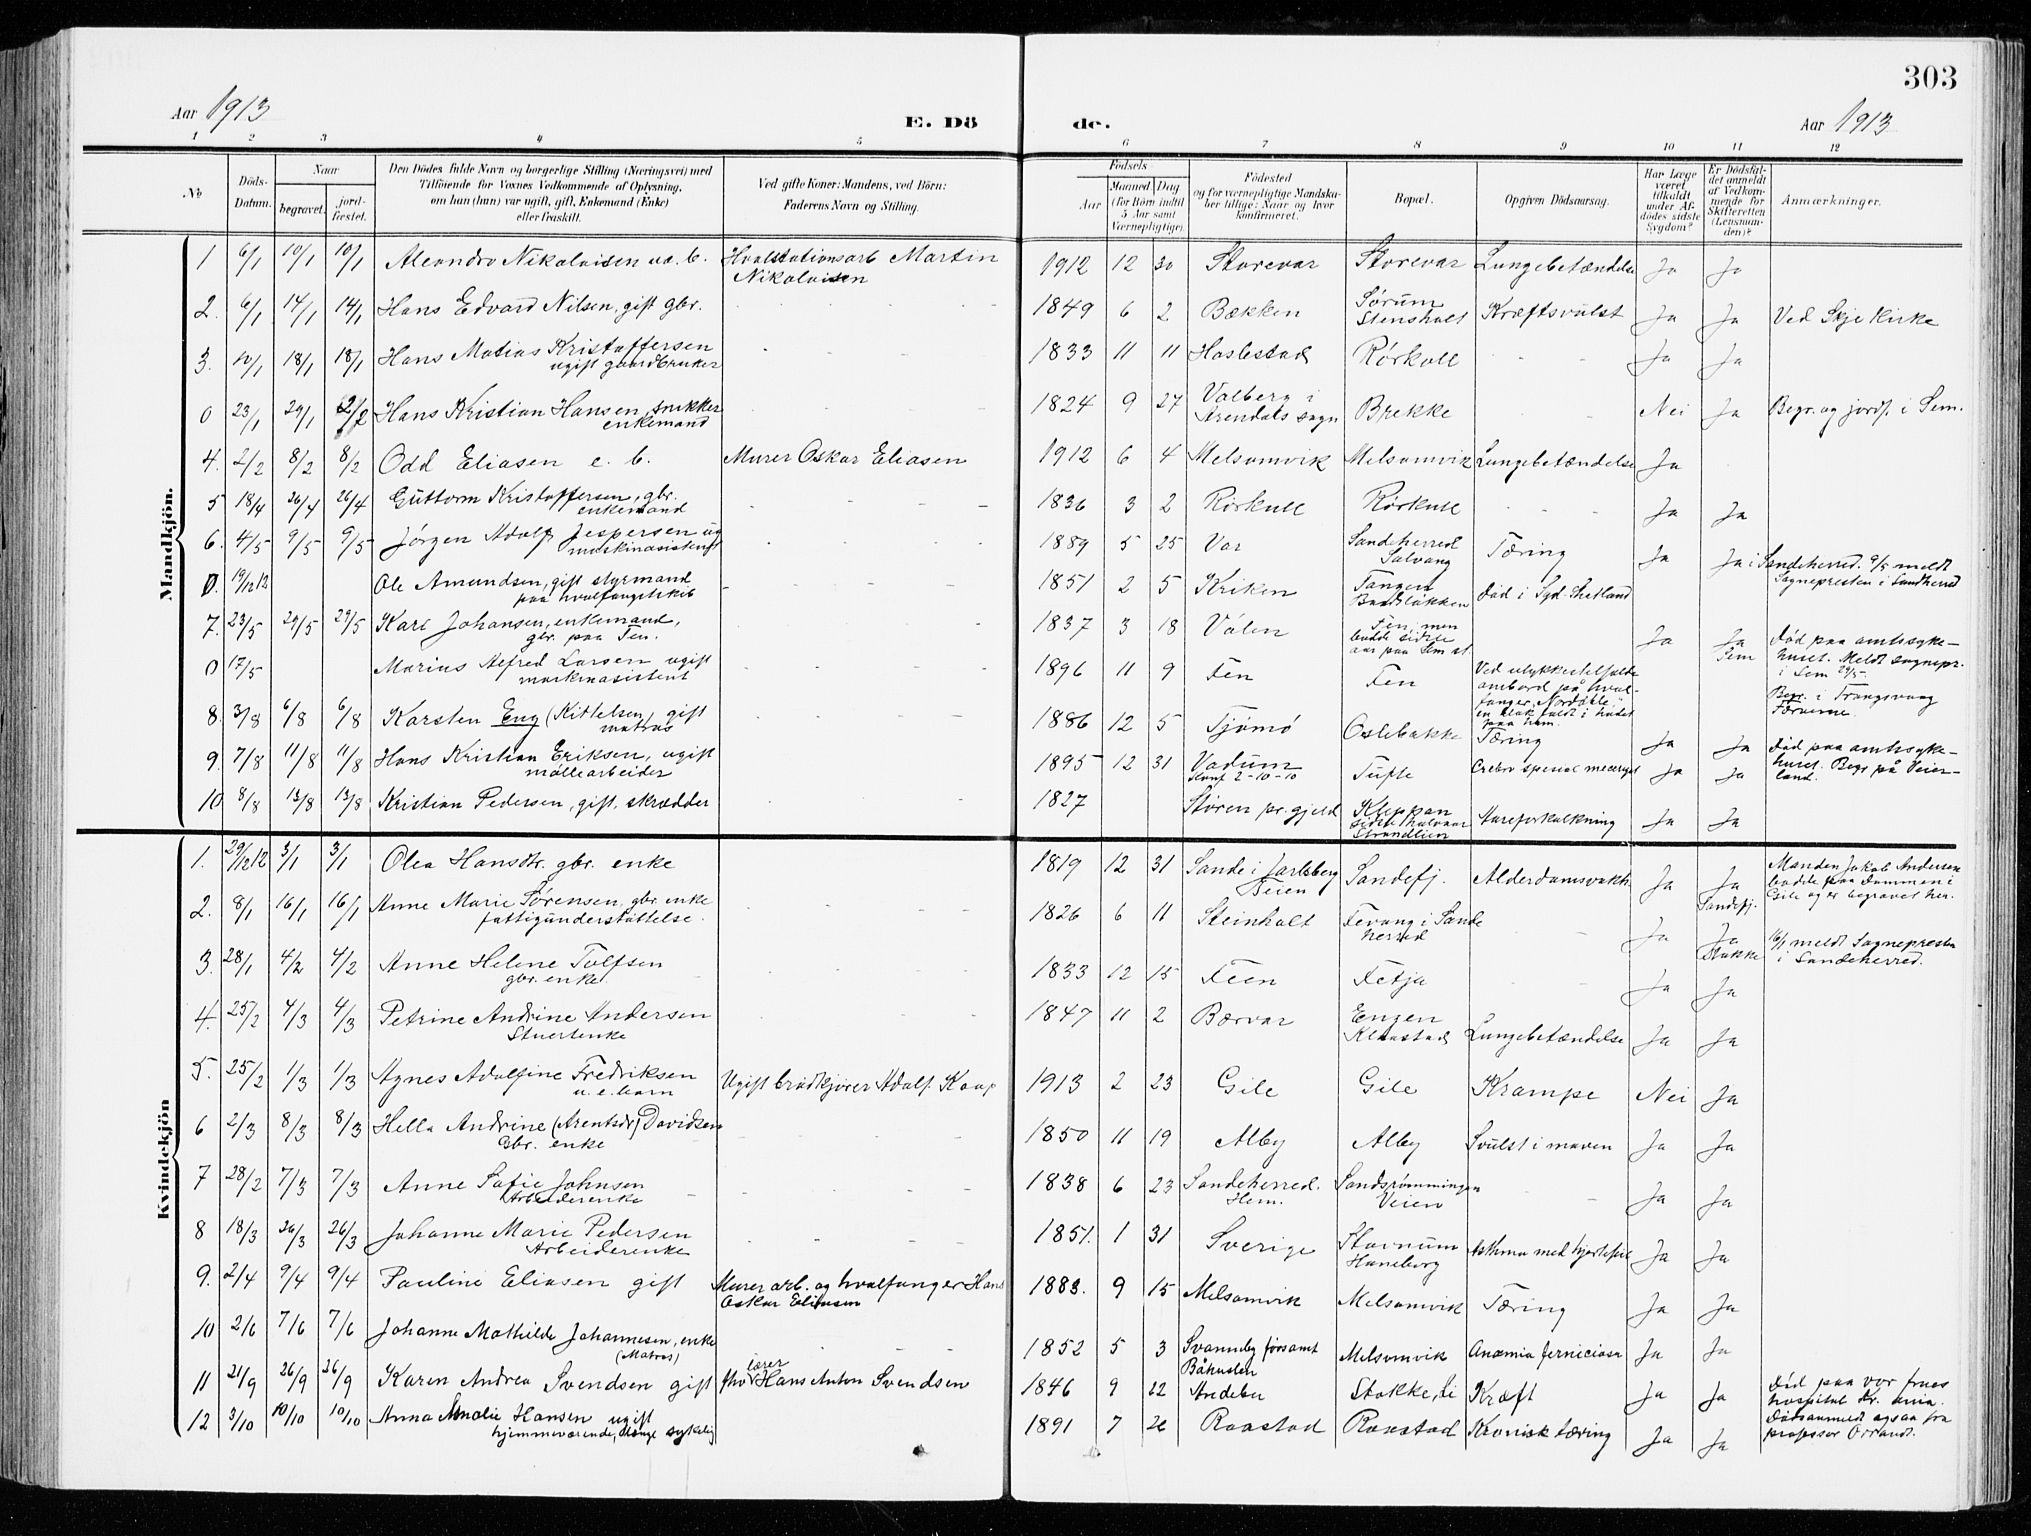 303
Aar 1913
E. Dö
de.
Aar 1913
1 2 3 4 5 6 7 8 9 10 11 12
№
Döds-
Datum.
Naar
begravet.
jord-
fæstet.
Den Dödes fulde Navn og borgerlige Stilling (Næringsvei) med
Tilföiende for Voxnes Vedkommende af Oplysning,
om han (hun) var ugift, gift, Enkemand (Enke)
eller fraskilt.
Ved gifte Koner: Mandens, ved Börn:
Faderens Navn og Stilling.
Födsels
Aar
Maaned Dag
(for Börn indtil
5 Aar samt
Værnepligtige).
Födested
og for værnepligtige Mandska-
ber tillige: Naar og hvor
konfirmeret.
Bopæl.
Opgiven Dödsaarsag.
Har Læge
været
tilkaldt
under Af-
dödes sidste
Sygdom?
Er Dödsfal-
det anmeldt
af Vedkom-
mende for
Skifteretten
(Lensman-
den)?
Anmærkninger.
Mandkjön.
1 6/1 10/1 10/1 Nikolaisen Hvalstationsarb Martin Nikolaisen 1912 12 30 Storevar Storevar Lungebetændelse Ja Ja
2. 6/1 14/1 14/1 Hans Edvard Nilsen, gift gbr. 1849 6 2 Bækken Sørum Stensholt Kræftsvulst Ja Ja Ved Skje Kirke
3. 10/1 18/1 18/1 Hans Matias Kristoffersen ugift gaardbruker 1833 11 11 Haslestad Rörkoll - - Ja Ja
0 23/1 29/1 2/2 Hans Kristian Hansen, snikker enkemand 1824 9 27 Valberg i Arendals sogn Brekke - - Nei Ja Begr. og jordf. i Sem.
4. 2/2 8/2 8/2 Odd Eliasen e. b. Murer Oskar Eliasen 1912 6 4 Melsomvik Melsomvik Lungebetændelse Ja
5 18/4 26/4 26/4 Guttorm Kristoffersen, gbr. enkemand 1836 3 2 Rörkoll Rörkoll - - Ja Ja
6. 4/5 9/5 9/5 Jørgen Adolf Jespersen ug maskinasistent 1889 5 25 Var Sandeherred Solvang Tæring Ja Ja i Sandeherred. 9/5 meldt Sognepresten i Sandherred
0. 19/12 12 Ole Amundsen, gift styrmand paa hvalfangstskib 1851 2 5 Kriken Tangen Død i Syd-Shetland
7. 23/5 29/5 29/5 Karl Johansen, enkemand, gbr. paa Fen. 1837 3 18 Vølen Fen, men bodde sidste aar paa Sem st. Ja Ja Sem Død paa amtssyke-huset. Meldt sognepr. i Sem 29/5.
0 17/5 Marius Alfred Larsen ugift maskinasistent 1896 11 9 Fen Fen Ved ulykkestilfælde ombord på hval-fanger "Nordøble," en blok faldt i hodet paa ham. Begr. i Trangsvaag Færøerne.
8. 3/8 6/8 6/8 Karsten Eng (Kittelsen), gift matros 1886 12 5 Tjømø Oslebakke Tæring Ja Ja Død paa amtssyke-huset. Begr på Veier-land.
9. 7/8 11/8 11/8 Hans Kristian Eriksen, ugift møllearbeider 1895 12 31 Vadum konf 2-10-10 Tufte Ja Ja
10 8/8 13/8 13/8 Kristian Pedersen, gift, skrædder 1827 Støren pr.gjeld Kleppan sidste halvaar Strandlien Aareforkalkning Ja Ja
Kvindekjön
1. 29/12 12 3/1 3/1 Olea Hansdtr. gbr. enke 1819 12 31 Sande i Jarlsberg Feien Sandefj. Alderdomsvakh. Ja Ja Sandefj. Manden Jakob Andersen bodde paa Dammen i Gile og er begravet her.
2. 8/1 16/1 16/1 Anne Marie Sørensen, gbr. enke fattigunderstøttelse. 1826 6 11 Steinholt Fevang i Sande herred - Ja Ja Stokke 16/1 meldt Sognepresten i Sandeherred.
3. 28/1 4/2 4/2 Anne Helene Tolfsen gbr. enke. 1833 12 15 Feen Fetja - - Ja Ja
4. 25/2 4/3 4/3 Petrine Andrine Andersen Stuertenke 1847 11 2 Bærvar Engen Klaastad Lungebetændelse Ja Ja
5. 25/2 1/3 1/3 Agnes Adolfine Fredriksen u. e. barn Ugift brødkjører Adolf Kaap 1913 2 23 Gile Gile Krampe Nei Ja
6 2/3 8/3 8/3 Hella Andrine (Arentsdr) Davidsen Gbr. enke 1850 11 19 Alby Alby Svulst i maven Ja Ja
7 28/2 7/3 7/3 Anne Sofie Johnsen Arbeiderenke 1838 6 23 Sandeherred. Hem. Sandsrømmingen Veien - - Ja Ja
8 18/3 26/3 26/3 Johanne Marie Pedersen Arbeiderenke 1851. 1 31 Sverige Stavnum Haneborg Asthma med hjertefeil Ja Ja
9. 2/4 9/4 9/4 Pauline Eliasen gift Murer arb. og hvalfanger Hans Oskar Eliasen 1883. 9 15 Melsomvik Melsomvik Tæring Ja Ja
10 2/6 7/6 7/6 Johanne Mathilde Johannesen, enke (Matros) 1852 5 3 Svanneby församl Båhuslen Melsomvik Anæmia perniciosa Ja Ja
11 21/9 26/9 26/9 Karen Andrea Svendsen gift fhv lærer Hans Anton Svendsen 1846 9 22 Andebu Stokke, Li Kræft Ja Ja Død paa vor frues hospital Kr. ania. Dødsanmeldt ogsaa fra professor
12 3/10 10/10 10/10 Anna Amalie Hansen ugift hjemmeværende, længe sykelig 1891 7 26 Raastad Raastad Kronisk tæring Ja Ja